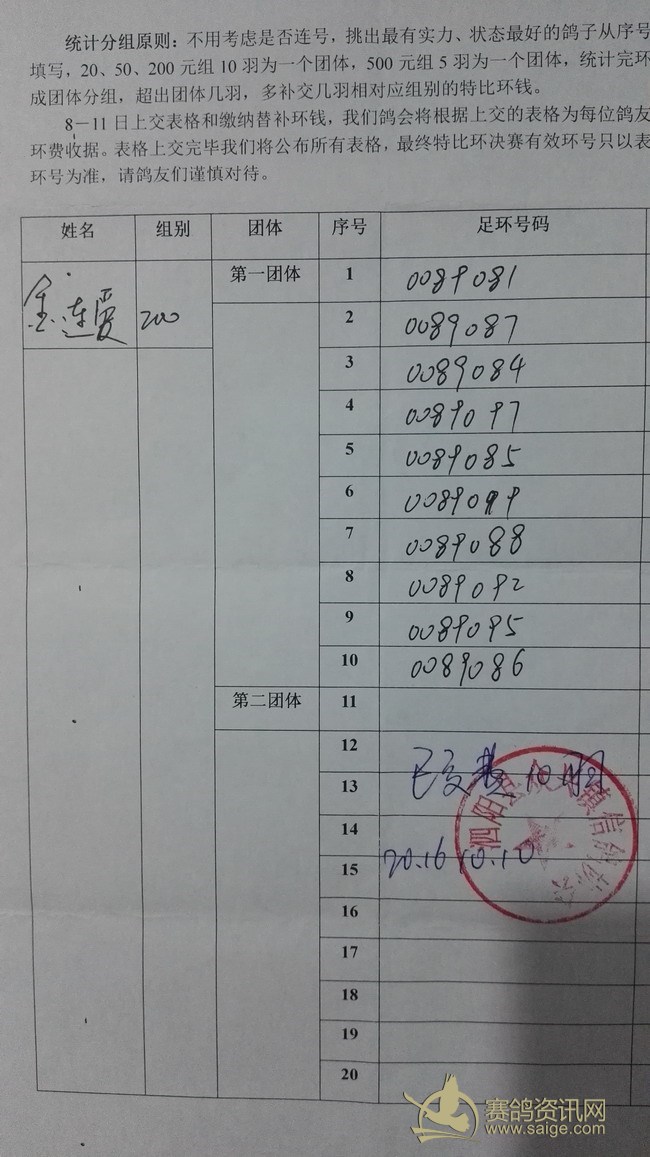 统计分组原则：不用考虑是否连号，挑出最有实力、状态最好的鸽子从序号
填写，20、50、200 元组 10 羽为一个团体，500 元组 5 羽为一个团体，统计完环
成团体分组，超出团体几羽，多补交几羽相对应组别的特比环钱。
8－11 日上交表格和缴纳替补环钱，我们鸽会将根据上交的表格为每位鸽友
环费收据。表格上交完毕我们将公布所有表格，最终特比环决赛有效环号只以表
环号为准，请鸽友们谨慎对待。
姓名 组别 团体 序号 足环号码
金连爱 200 第一团体 1 0089081
2 0089087
3 0089084
4 0089097
5 0089085
6 0089099
7 0089088
8 0089092
9 0089095
10 0089086
第二团体 11
12
已交费 10羽
13
14
2016.10.10
15
泗阳县众兴镇信鸽协会
16
17
18
19
20
赛鸽资讯网
www.saige.com